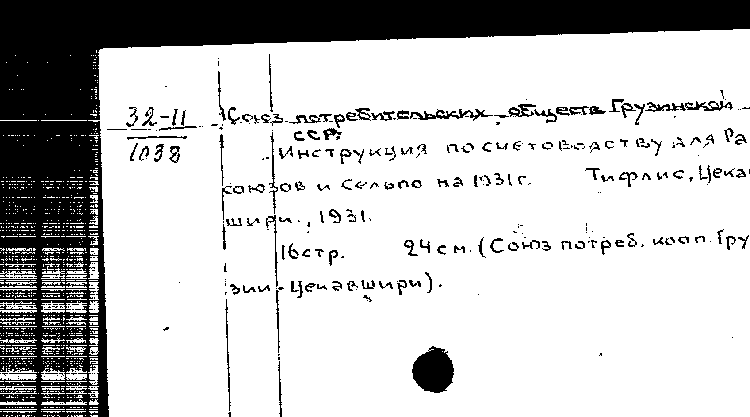 32-11
1038
Союз потребительских обществ Грузинской
ССР;
Инструкция по счетоводству для Ра
союзов и Сельпо на 1931г. Тифлис, Цека
шири., 1931.
16 стр. 24 см. (Союз потреб. кооп. Гру
зии - Цекавшири).